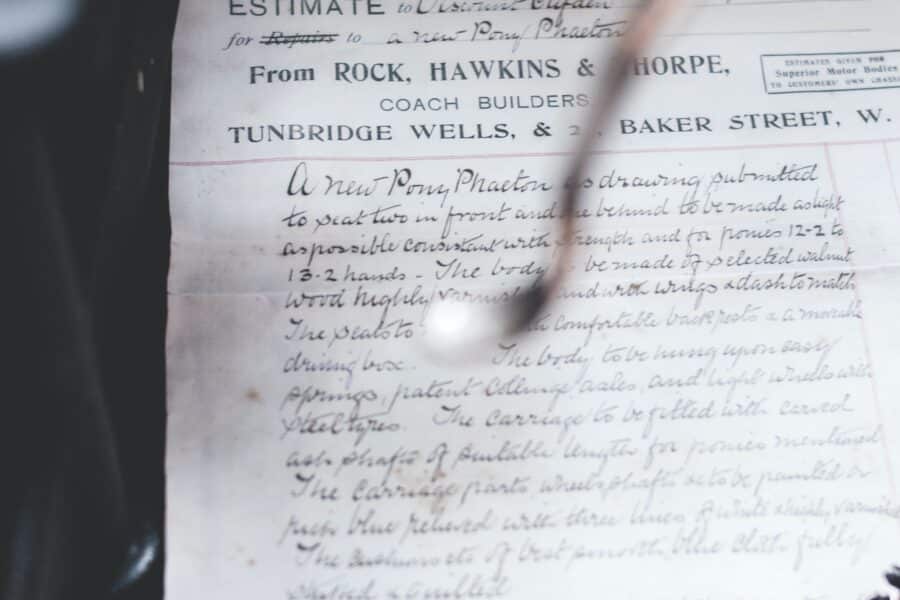 ESTIMATE to Viscount Clifden
for Repairs to a new Pony Phaeton
From ROCK, HAWKINS & THORPE,
ESTIMATES GIVEN FOR
Superior Motor Bodies
TO CUSTOMERS' OWN CHASSIS
COACH BUILDERS,
TUNBRIDGE WELLS, & BAKER STREET, W.
A new Pony Phaeton as drawing submitted
to seat two in front and one behind to be made as light
as possible consistent with strength and for ponies 12-2 to
13-2 hands - The body to be made of selected walnut
wood highly varnished and with wings & dash to match
The seats to comfortable back rests & a movable
driving box. The body to be hung upon easy
springs, patent Collinge axles, and light wheels with
steel tyres. The carriage to be fitted with curved
ash shafts of suitable length for ponies mentioned
The carriage parts, wheels, shafts &c to be painted a
rich blue relieved with three lines of white & varnished
The cushions &c of best smooth blue cloth fully